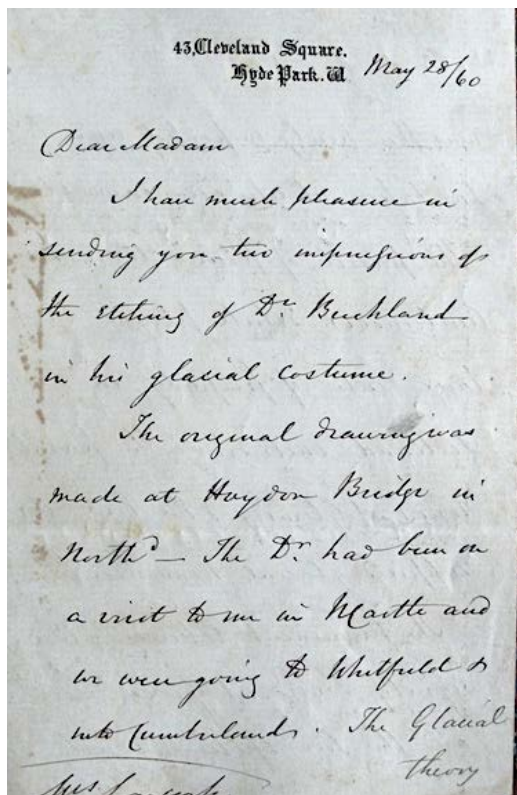 43, Cleveland Square.
Hyde Park. W
May 28/60
Dear Madam
I have much pleasure in
sending you two impressions of
the etching of Dr. Buckland
in his glacial costume.
The original drawing was
made at Haydon Bridge in
Northd — The Dr. had been on
a visit to me in Newcastle and
we were going to Whitfield &
into Cumberland. The Glacial
theory
Mrs